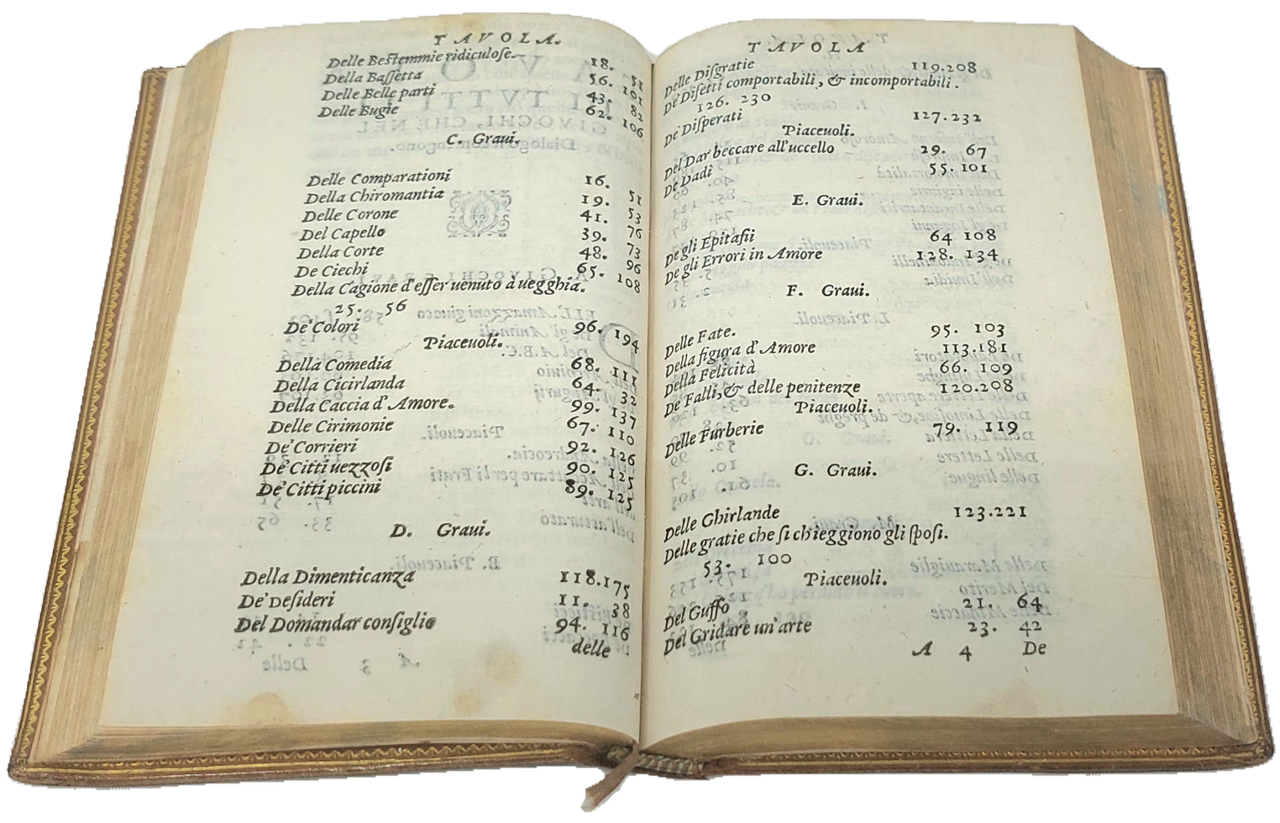 TAVOLA.
Delle Bestemmie ridiculose. 18. 51
Della Bassetta 56. 101
Delle Belle parti 43. 82
Delle Bugie 62. 106
C. Graui.
Delle Comparationi 16.
Della Chiromantia 19. 51
Delle Corone 41. 53
Del Capello 39. 76
Della Corte 48. 73
De Ciechi 65. 96
Della Cagione d'esser uenuto à uegghia. 108
25. 56
De' Colori 96. 194
Piaceuoli.
Della Comedia 68. 111
Della Cicirlanda 64. 32
Della Caccia d'Amore. 99. 137
Delle Cirimonie 67. 110
De' Corrieri 92. 126
De' Citti uezzosi 90. 125
De' Citti piccini 89. 125
D. Graui.
Della Dimenticanza 118.175
De' Desideri 11. 38
Del Domandar consiglio 94. 116
delle
TAVOLA
Delle Disgratie 119.208
De' Difetti comportabili, & incomportabili.
126. 230
De' Disperati 127.232
Piaceuoli.
Del Dar beccare all'uccello 29. 67
De' Dadi 55. 101
E. Graui.
De gli Epitafii 64 108
De gli Errori in Amore 128. 134
F. Graui.
Delle Fate. 95. 103
Della figura d'Amore 113.181
Della Felicità 66. 109
De' Falli, & delle penitenze 120.208
Piaceuoli.
Delle Furberie 79. 119
G. Graui.
Delle Ghirlande 123.221
Delle gratie che si chieggiono gli sposi.
53. 100
Piaceuoli.
Del Guffo 21. 64
Del Gridare un'arte 23. 42
A 4 De